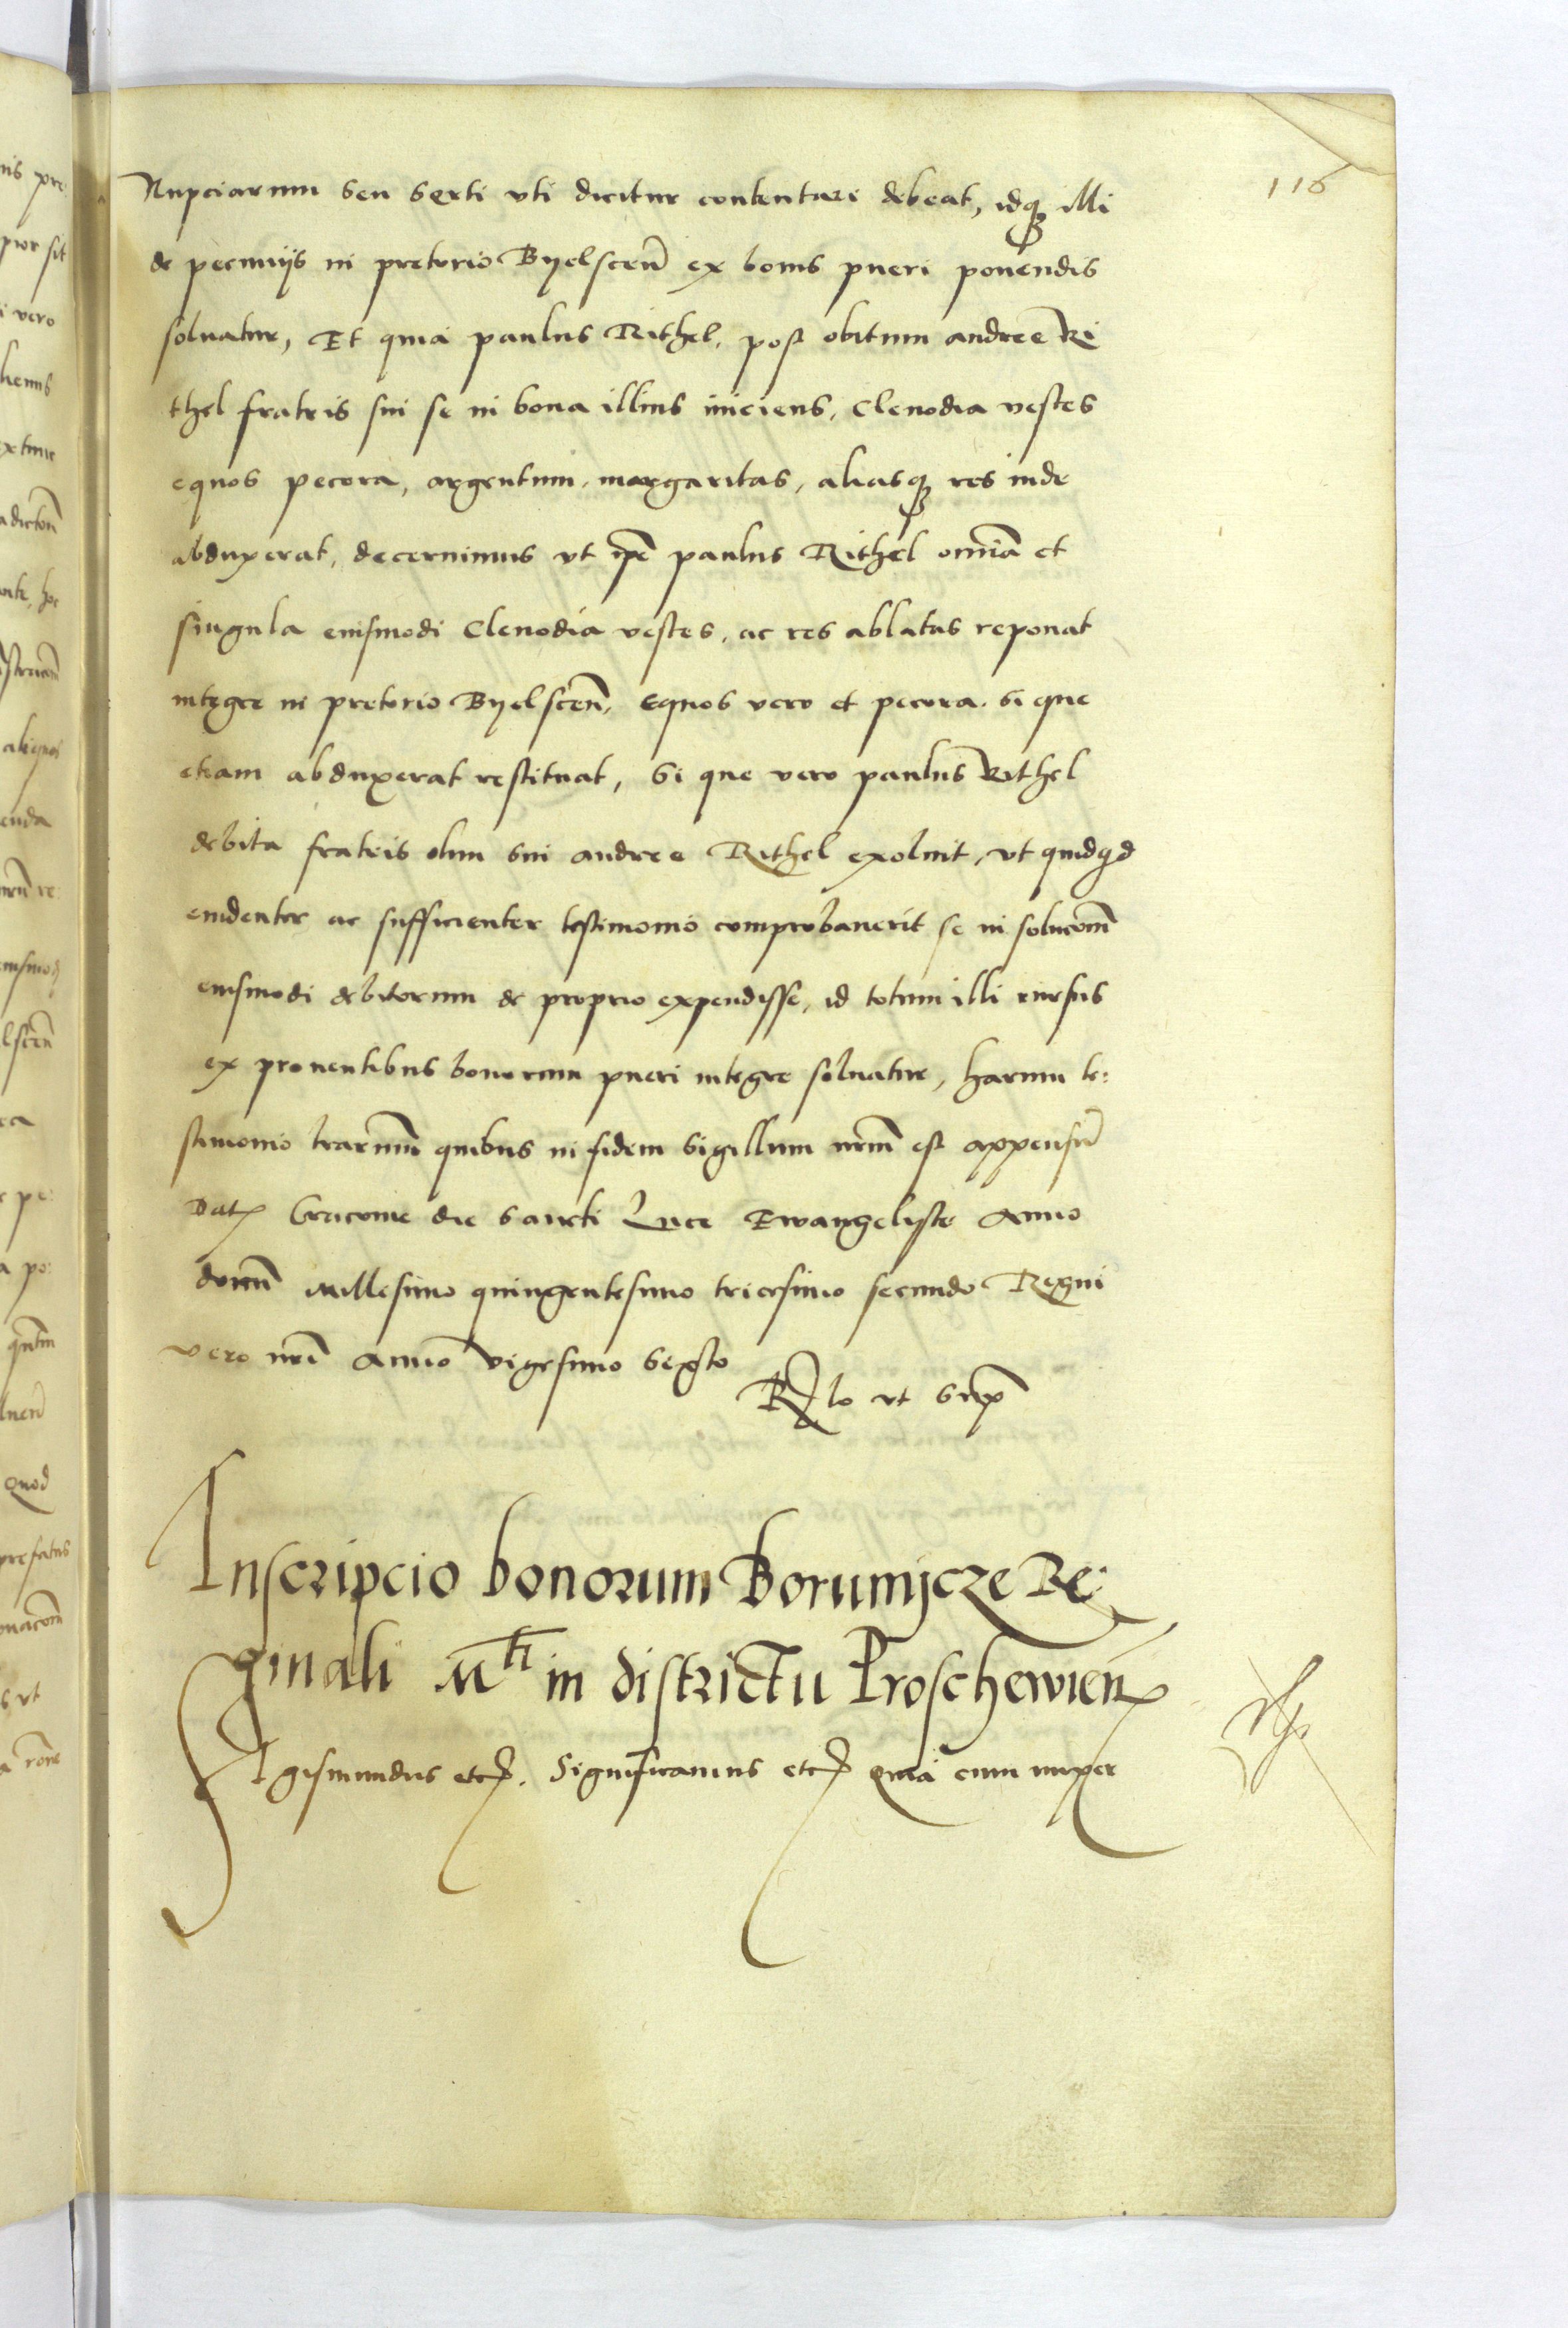 116
Nupciarum seu serti vti dicitur contentari debeat, idq3 illi
de pecunijs in pretorio Byelsceñ ex bonis pueri ponendis
soluatur, Et quia paulus Rithel, post obitum andree Ri
thel fratris sui se in bona illius iniciens, Clenodia vestes
equos pecora, argentum, margaritas, aliasq3 res inde
abduxerat, decernimus vt ip̃e paulus Rithel om̃ia et
singula eiusmodi Clenodia vestes, ac res ablatas reponat
integre in pretorio Byelsceñ, Equos vero et pecora, si que
etiam abduxerat restituat, Si que vero paulus Rithel
debita fratris olim sui andree Rithel exoluit, vt quidqd
euidenter ac sufficienter testimonio comprobauerit se in soluc̃oem̃
eiusmodi debitorum de proprio expendisse, id totum illi rursus
ex prouentibus bonorum pueri integre soluatur, harum te:
stimonio l̃rarum quibus in fidem Sigillum nr̃m est appensũ
Dat Cracouie die Sancti Luce Ewangeliste Anno
domĩ Millesimo quingentesimo tricesimo secundo Regni
vero nr̃i Anno vigesimo sexto
Rlo vt sup̃
Inscripcio bonorum Borumijcze Re:
ginali M^ti in districtu Proschewieñ
Sigismundus etc. Significamus etc quia cum nuper